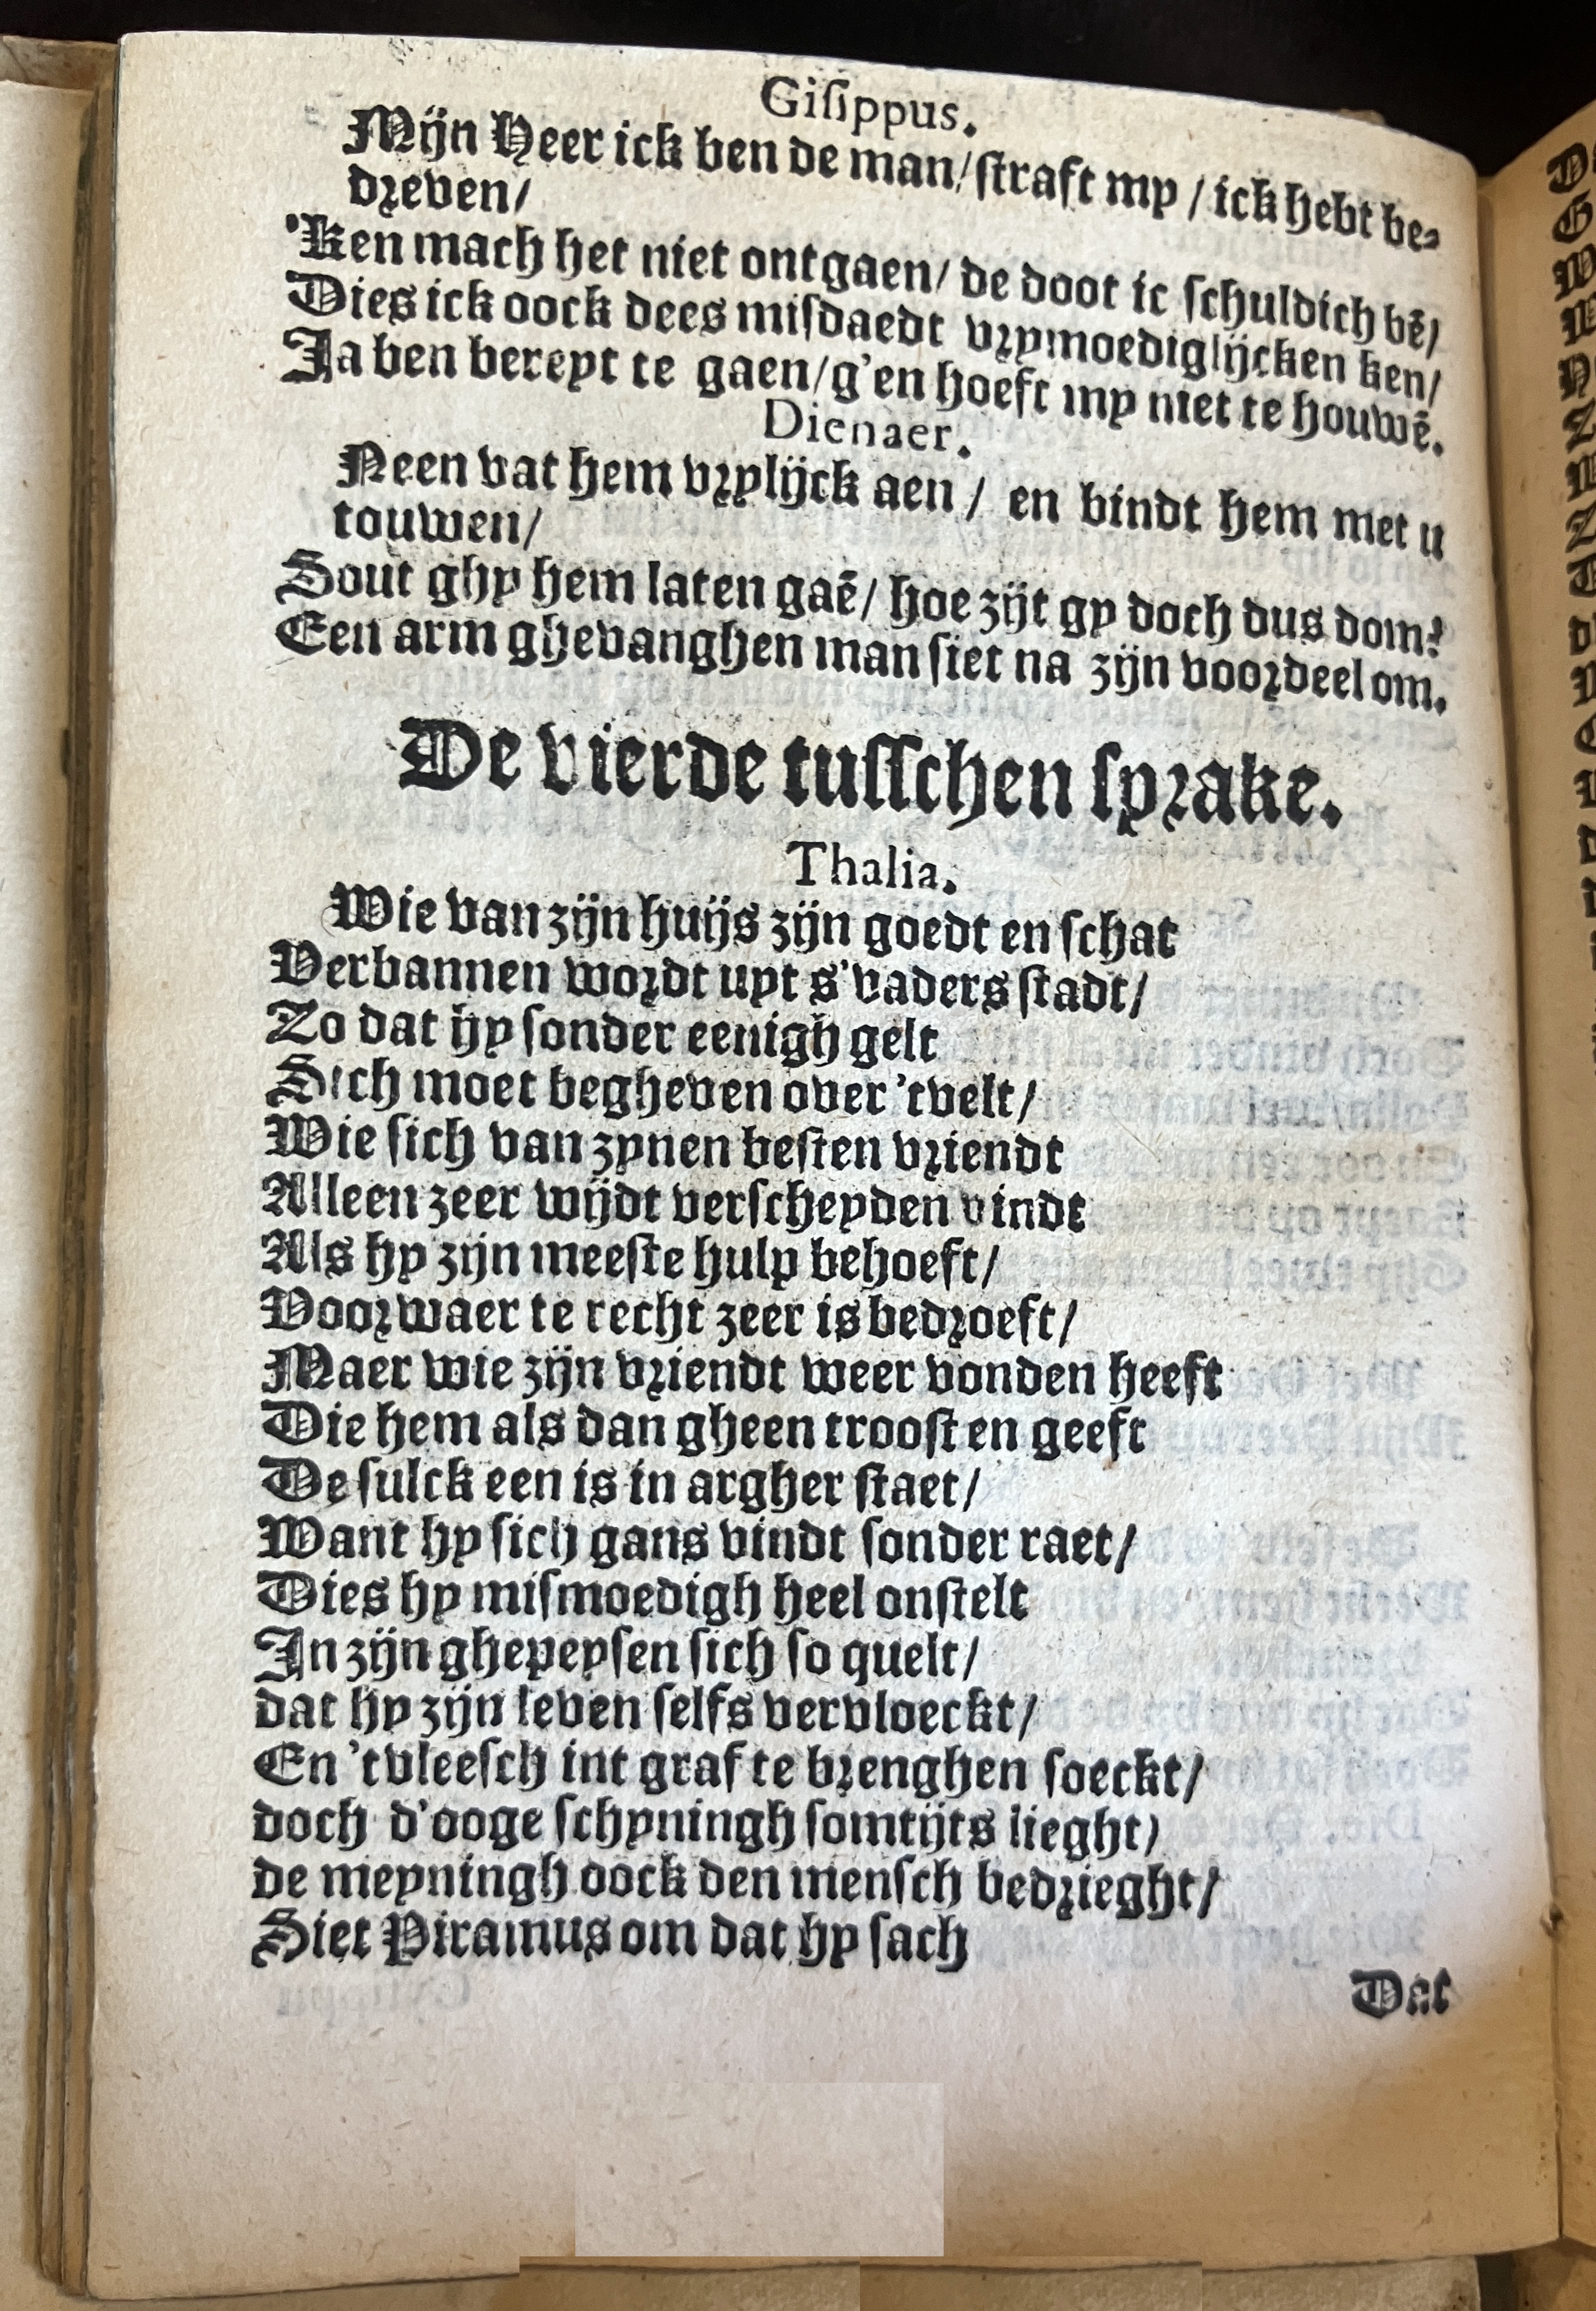 Gisippus.
Mijn Heer ick ben de man/ straft my / ick hebt be-
dreven/
'Ken mach het niet ontgaen/ de doot ic schuldich bē/
Dies ick oock dees misdaedt vrymoediglijcken ken/
Ja ben bereyt te gaen/ g'en hoeft my niet te houwē.
Dienaer.
Neen vat hem vrylijck aen / en bindt hem met u
touwen/
Sout ghy hem laten gaē/ hoe zijt gy doch dus dom?
Een arm ghevanghen man siet na zijn voordeel om.
De vierde tusschen sprake.
Thalia.
Wie van zijn huijs zijn goedt en schat
Verbannen wordt uyt s'vaders stadt/
Zo dat hy sonder eenigh gelt
Sich moet begheven over 'tvelt/
Wie sich van zynen besten vriendt
Alleen zeer wijdt verscheyden vindt
Als hy zijn meeste hulp behoeft/
Voorwaer te recht zeer is bedroeft/
Maer wie zijn vriendt weer vonden heeft
Die hem als dan gheen troost en geeft
De sulck een is in argher staet/
Want hy sich gans vindt sonder raet/
Dies hy mismoedigh heel onstelt
In zijn ghepeysen sich so quelt/
dat hy zijn leven selfs vervloeckt/
En 'tvleesch int graf te brenghen soeckt/
doch d'ooge schyningh somtijts lieght/
de meyningh oock den mensch bedrieght/
Siet Piramus om dat hy sach
Dat